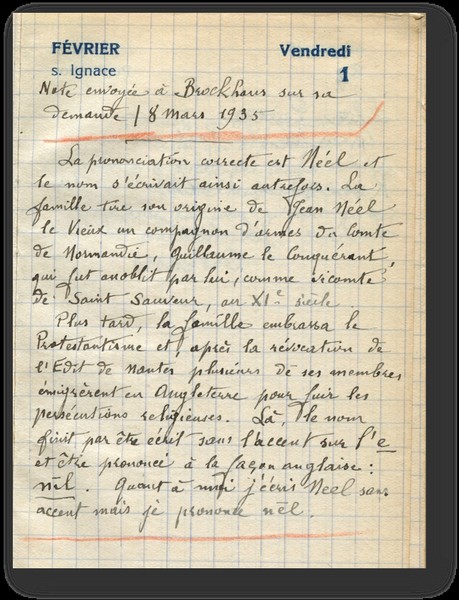 FÉVRIER Vendredi
s. Ignace 1
Note envoyée à Brockhaus sur sa
demande / 8 Mars 1935
La prononciation correcte est Néel et
le nom s'écrivait ainsi autrefois. La
famille tire son origine de Jean Néel
le Vieux un compagnon d'armes du Comte
de Normandie, Guillaume le Conquérant,
qui fut anobli par lui, comme vicomte
de Saint Sauveur, au XIe siècle.
Plus tard, la famille embrassa le
Protestantisme et, après la révocation de
l'Edit de Nantes plusieurs de ses membres
émigrèrent en Angleterre pour fuir les
persécutions religieuses. Là, le nom
finit par être écrit sans l'accent sur l'e
et être prononcé à la façon anglaise :
nēl. Quant à moi j'écris Neel sans
accent mais je prononce nēl.